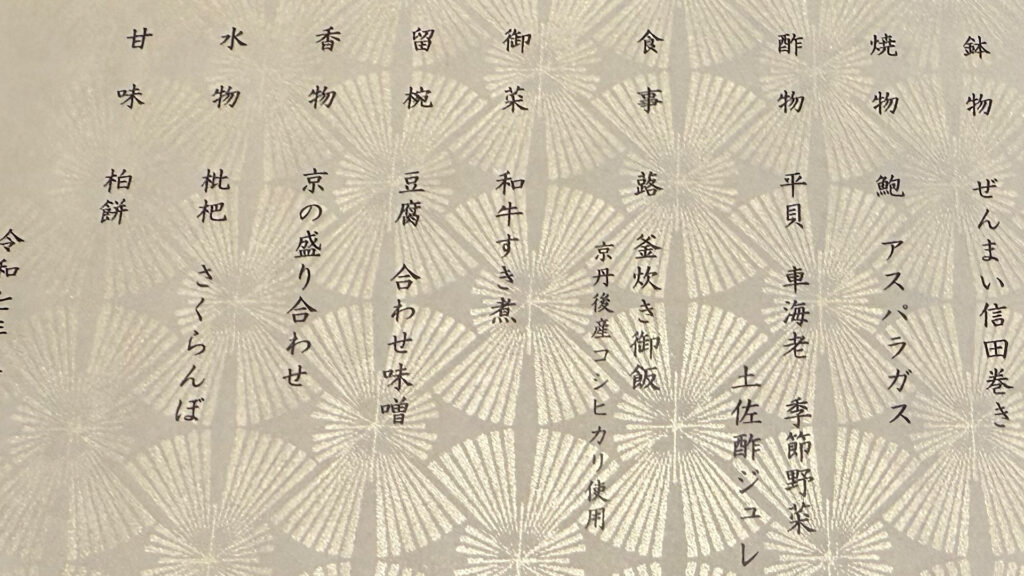 鉢物 ぜんまい信田巻き
焼物 鮑 アスパラガス
酢物 平貝 車海老 季節野菜
土佐酢ジュレ
食事 蕗 釜炊き御飯
京丹後産コシヒカリ使用
御菜 和牛すき煮
留椀 豆腐 合わせ味噌
香物 京の盛り合わせ
水物 枇杷 さくらんぼ
甘味 柏餅
令和七年